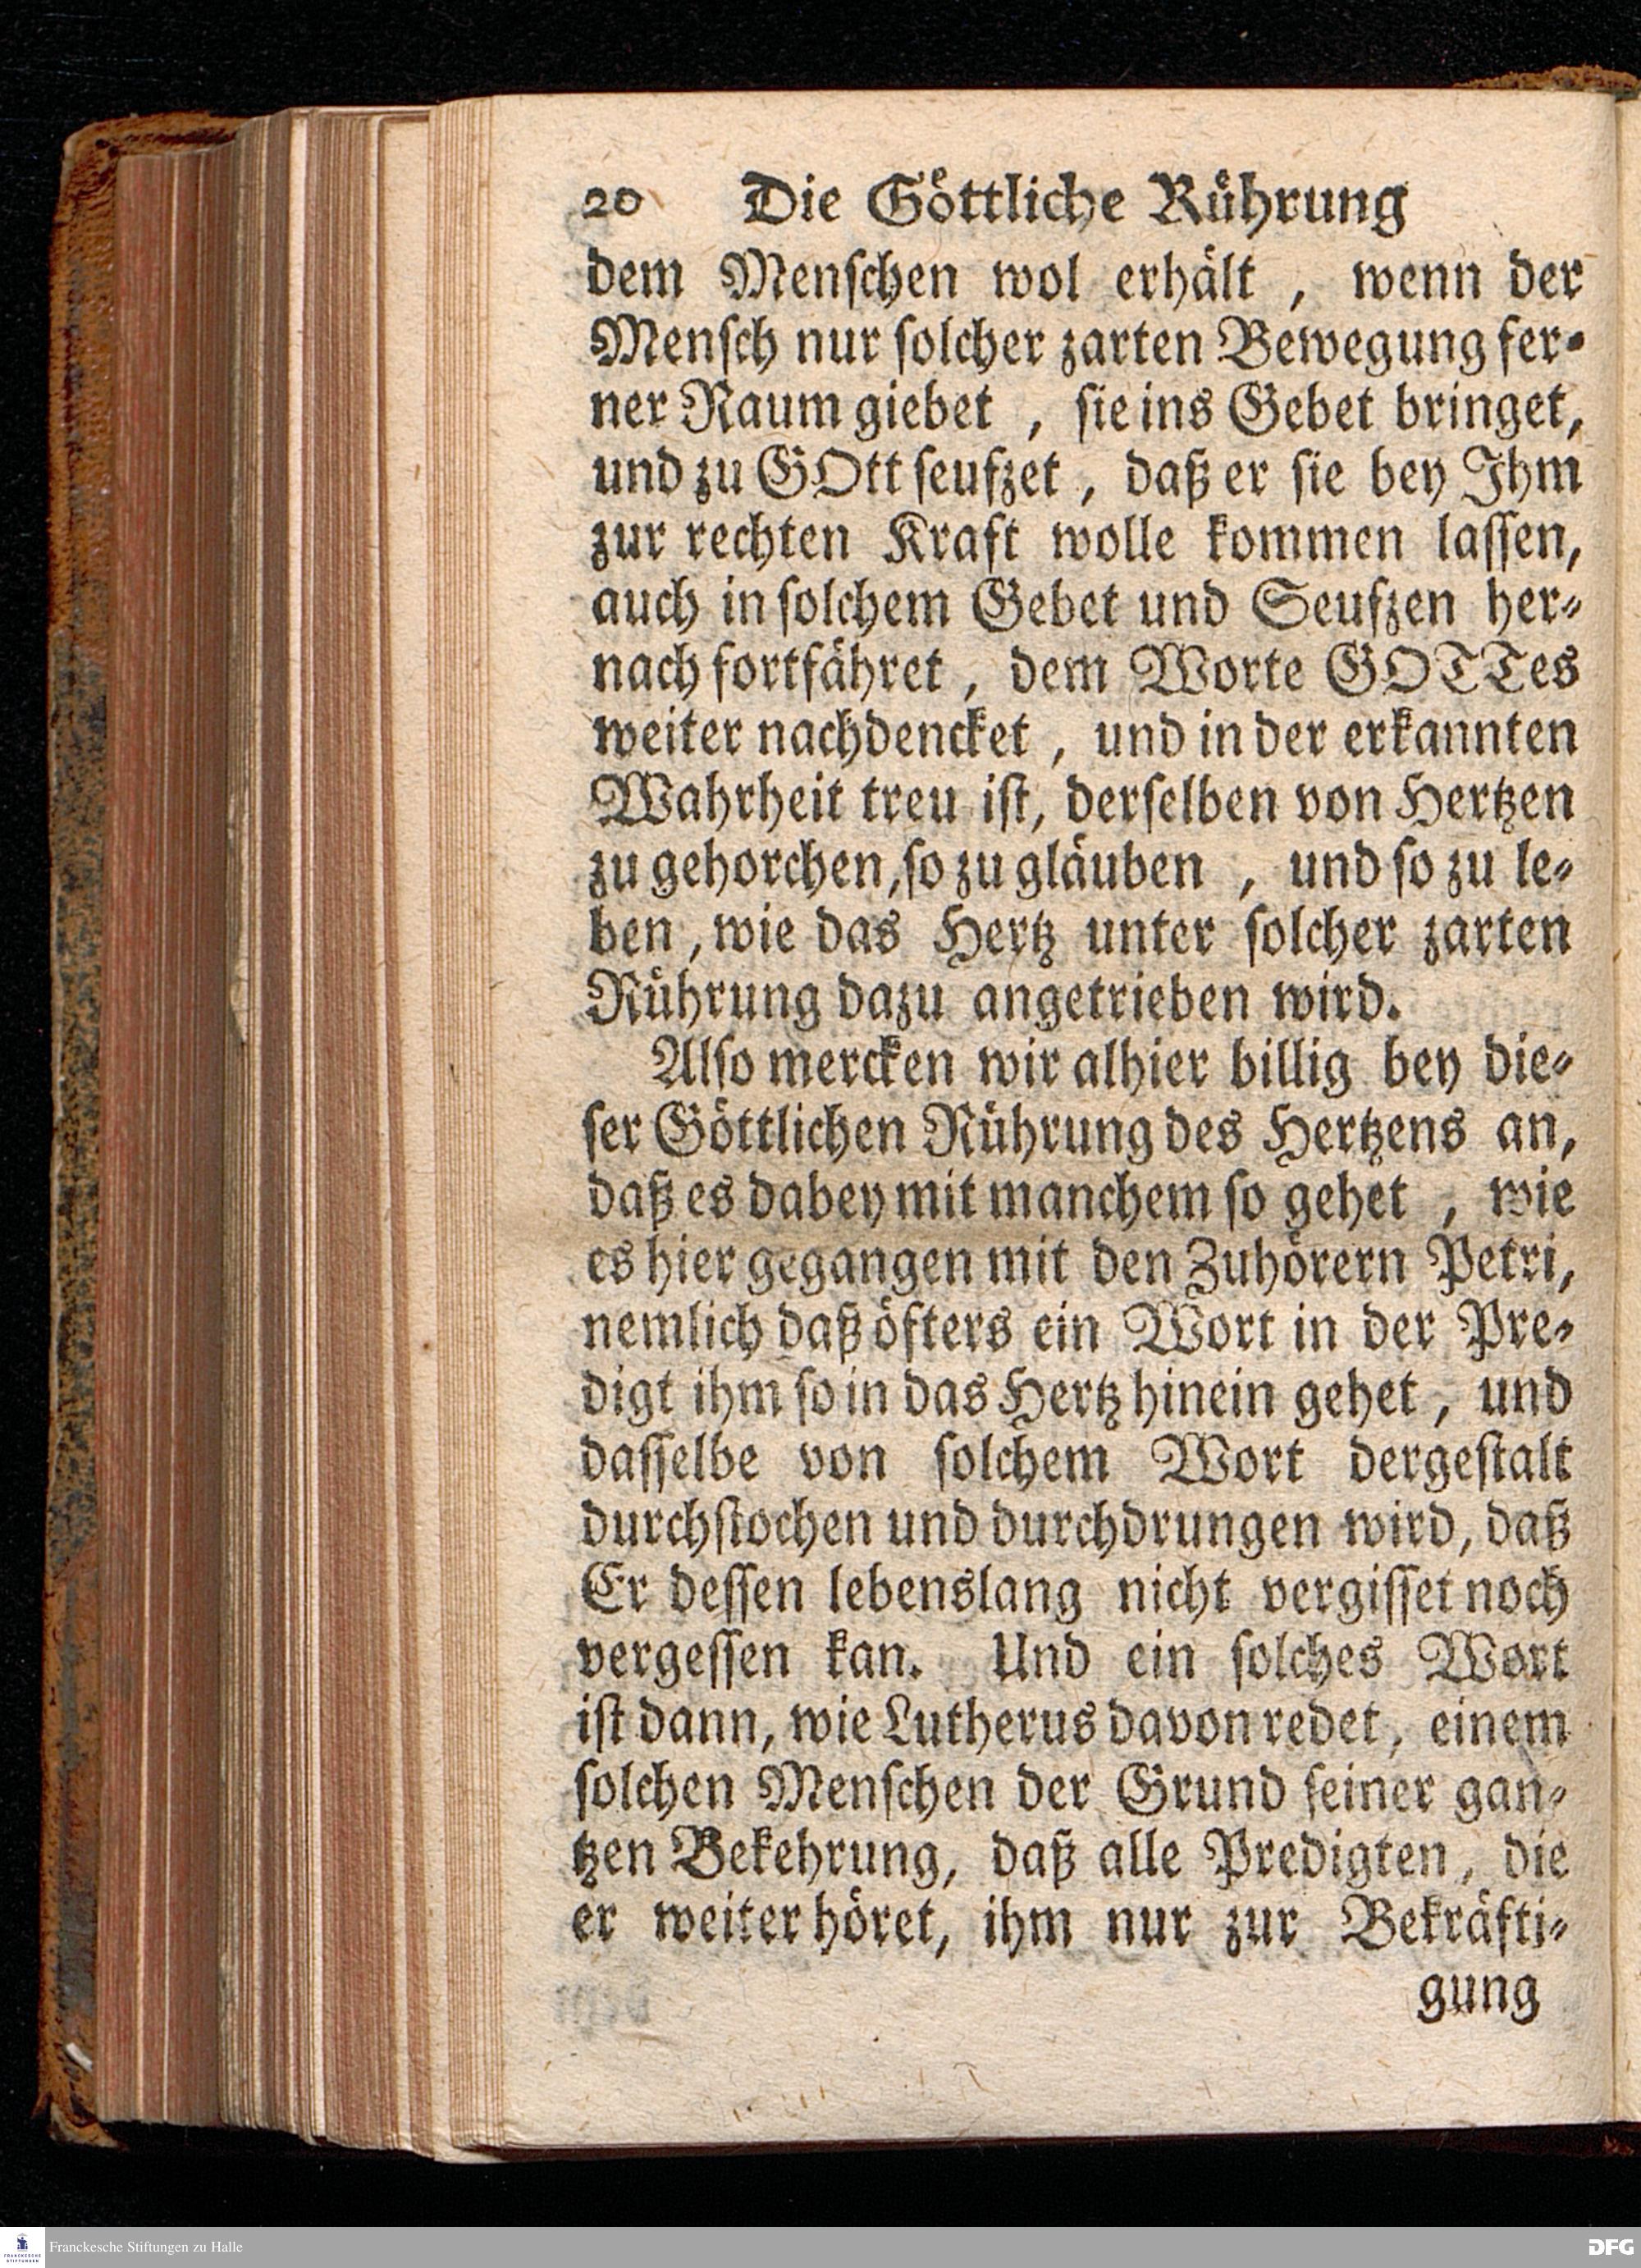 20 Die Göttliche Rührung
dem Menſchen wol erhält , wenn der
Menſch nur ſolcher zarten Bewegung fer-
ner Raum giebet , ſie ins Gebet bringet,
und zu GOtt ſeufzet , daß er ſie bey Ihm
zur rechten Kraft wolle kommen laſſen,
auch in ſolchem Gebet und Seufzen her-
nach fortfähret , dem Worte GOTTes
weiter nachdencket , und in der erkannten
Wahrheit treu iſt, derſelben von Hertzen
zu gehorchen, ſo zu gläuben , und ſo zu le-
ben , wie das Hertz unter ſolcher zarten
Rührung dazu angetrieben wird.
Alſo mercken wir alhier billig bey die-
ſer Göttlichen Rührung des Hertzens an,
daß es dabey mit manchem ſo gehet , wie
es hier gegangen mit den Zuhörern Petri,
nemlich daß öfters ein Wort in der Pre-
digt ihm ſo in das Hertz hinein gehet , und
daſſelbe von ſolchem Wort dergeſtalt
durchſtochen und durchdrungen wird, daß
Er deſſen lebenslang nicht vergiſſet noch
vergeſſen kan. Und ein ſolches Wort
iſt dann, wie Lutherus davon redet, einem
ſolchen Menſchen der Grund ſeiner gan-
tzen Bekehrung, daß alle Predigten , die
er weiter höret, ihm nur zur Bekräfti-
gung
Franckesche Stiftungen zu Halle
DFG